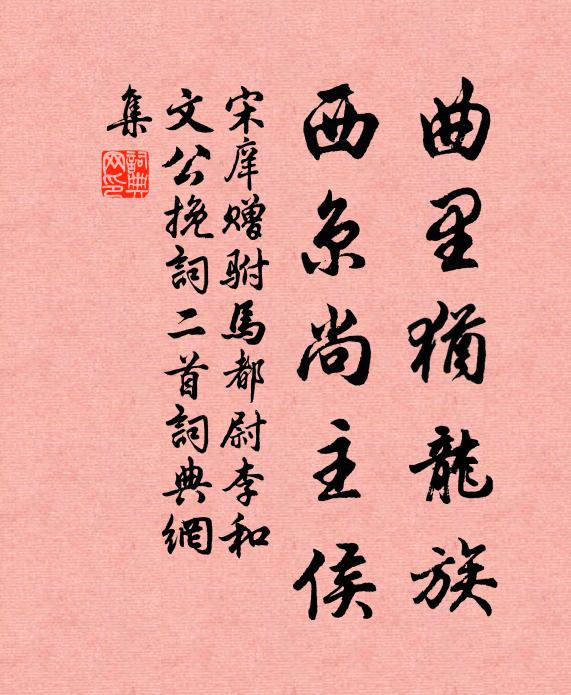 曲里猶龍族
西京尚主侯
宋庠贈駙馬都尉李和
文公挽詞二首詞典網
集
詞典
网印